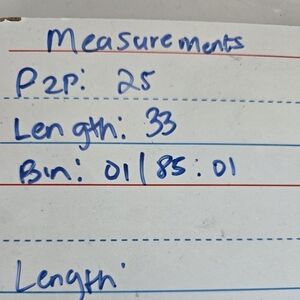 Measurements
P2P: 25
Length: 33
Bin: 01/85:01
Length: